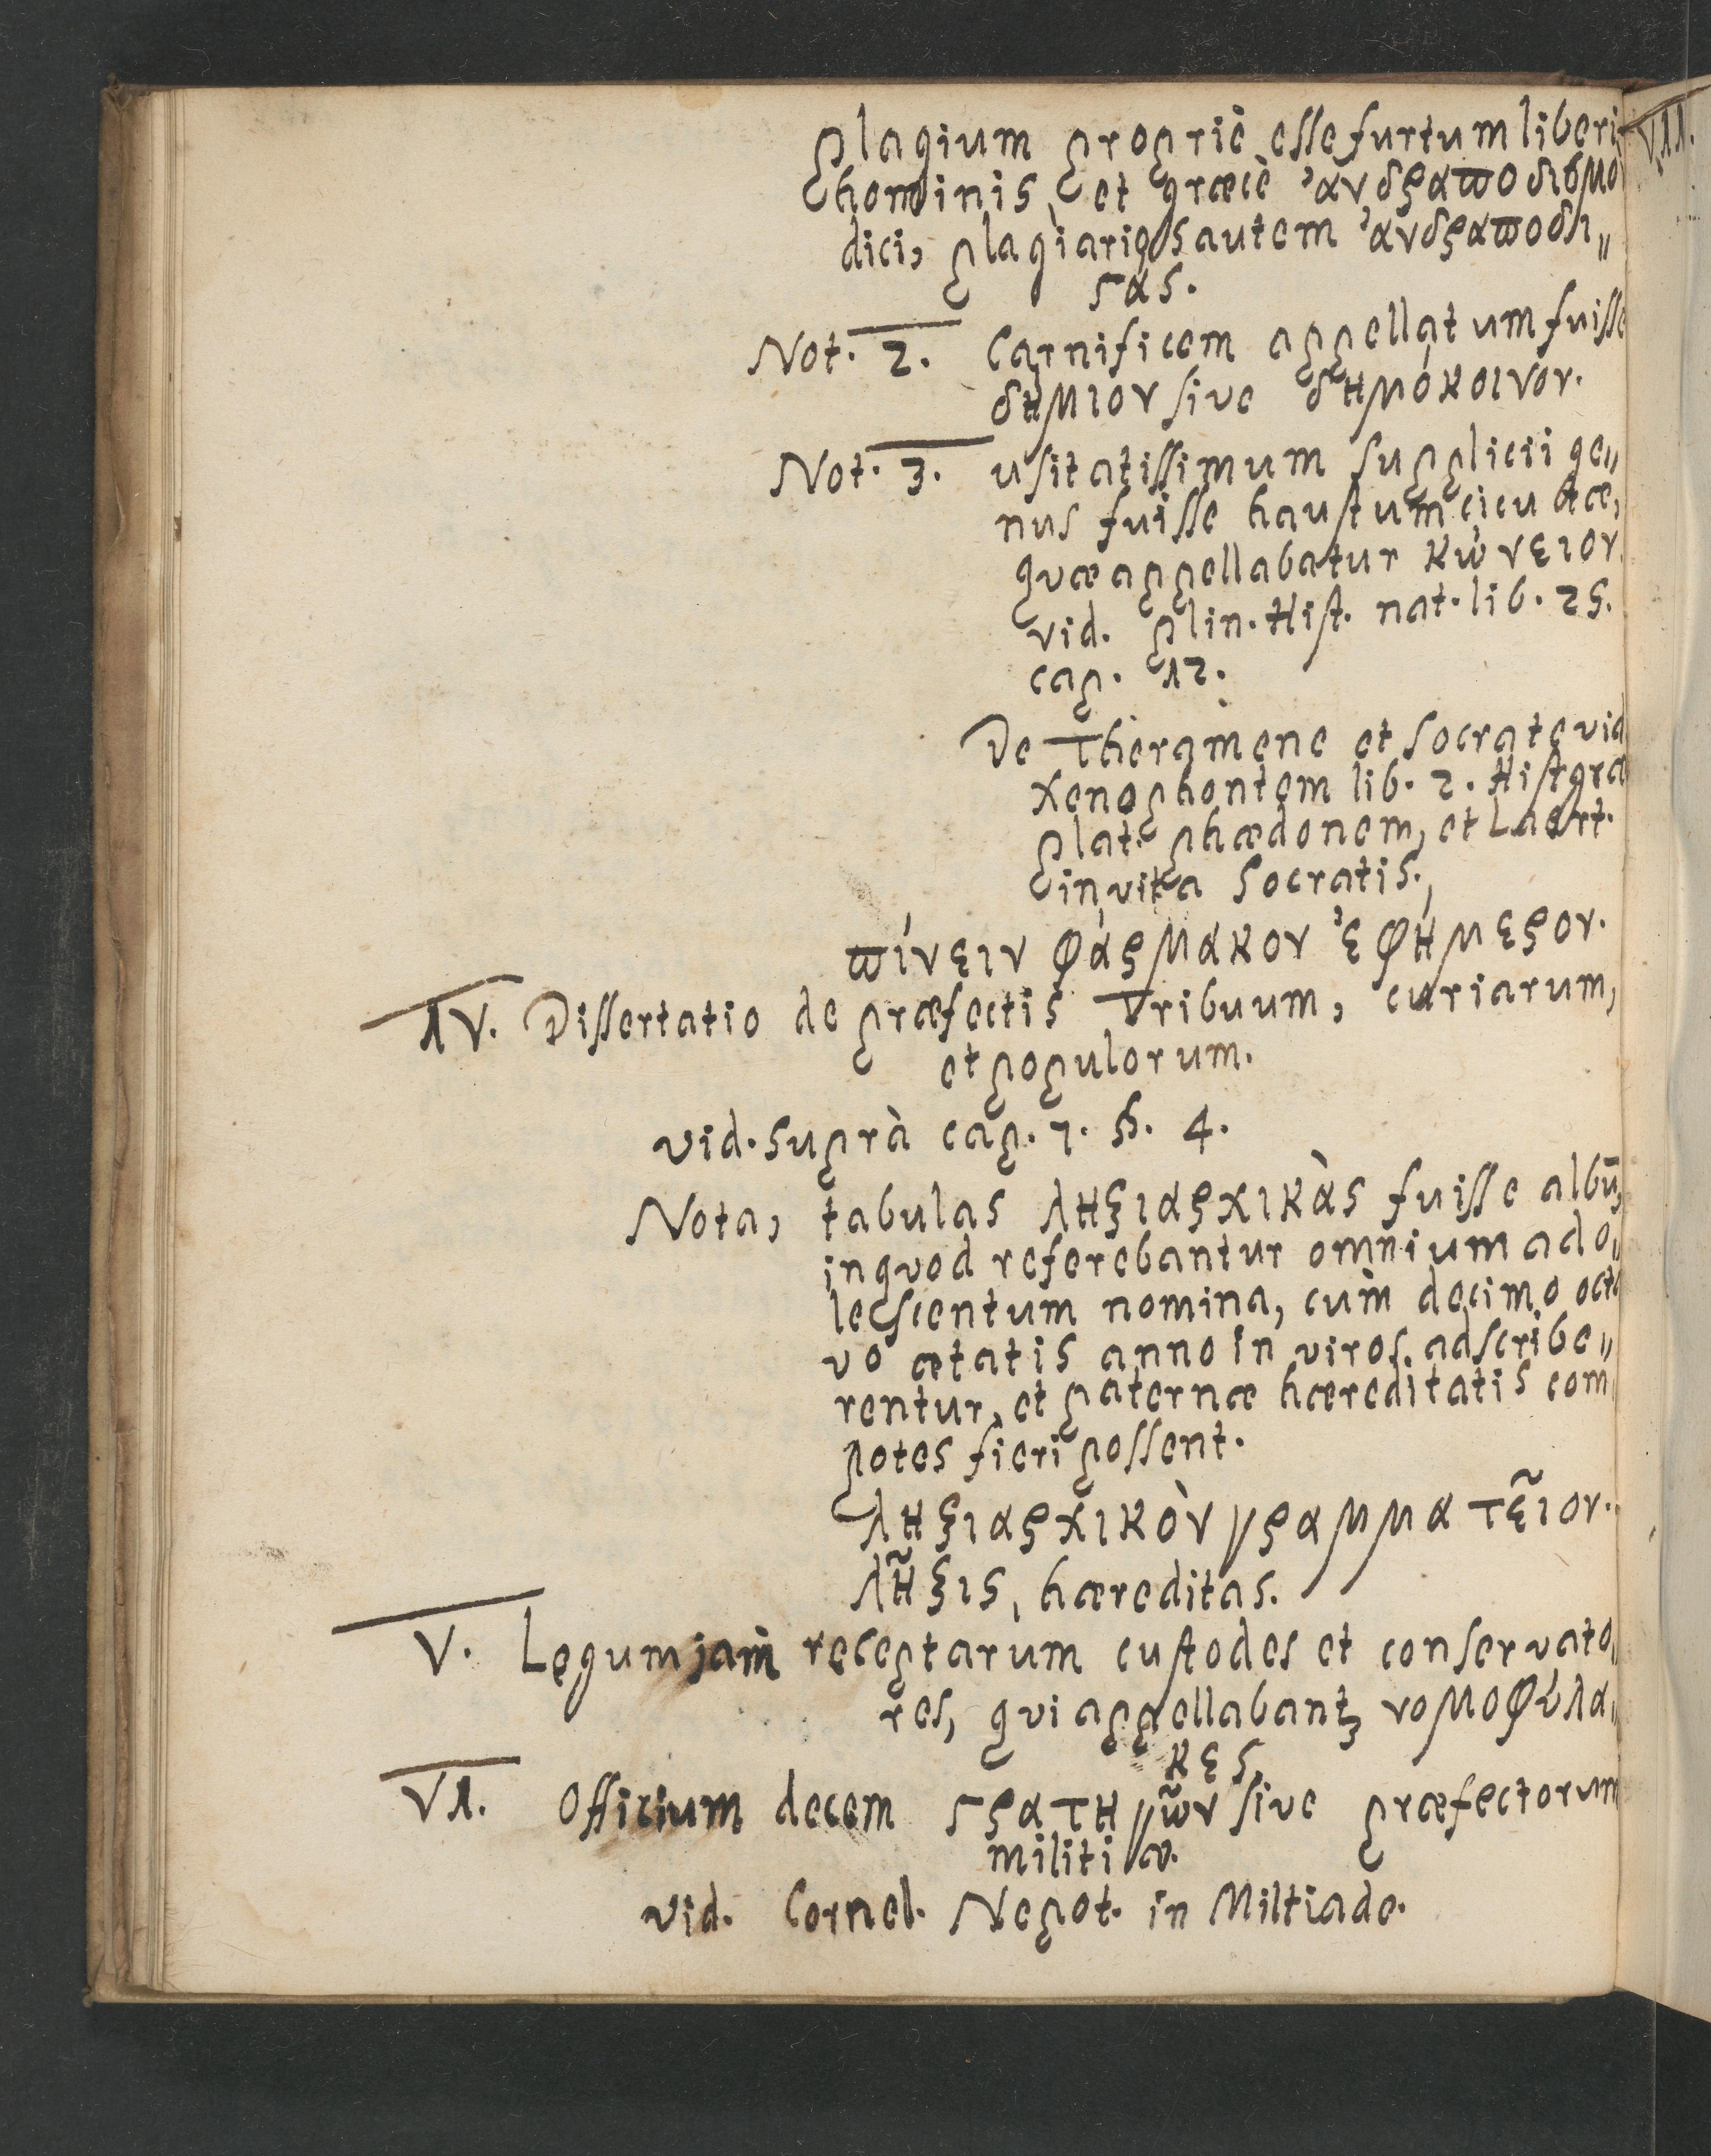 plagium propriè esse furtum liberi
hominis, et græcè ἀνδραποδισμὸ
dici, plagiarios autem ἀνδραποδι„
ϛάς.
Not. 2. Carnificem appellatum fuisse
δήμιον sive δημόκοινον.
Not. 3. usitatissimum supplicii ge„
nus fuisse haustum cicutæ,
quæ appellabatur κώνειον.
vid. plin. Hist. nat. lib. 25.
cap. 12.
De Theramene et Socrate vid
Xenophontem lib. 2. Hist græ
plat. phædonem, et Laërt.
in vita Socratis.
πίνειν φάρμακον ἐφήμερον.
IV. Dissertatio de præfectis Tribuum, curiarum,
et populorum.
vid. suprà cap. 7. §. 4.
Nota, tabulas ληξιαρχικὰς fuisse albū,
in quod referebantur omnium ado„
lescentum nomina, cùm decimo octa
vo ætatis anno in viros adscribe„
rentur, et paternæ hæreditatis com„
potes fieri possent.
ληξιαρχικὸν γραμματεῖον.
λῆξις, hæreditas.
V. Legum jam receptarum custodes et conservato„
res, qui appellabantꝫ νομοφύλα„
κες.
VI. Officium decem ϛρατηγῶν sive præfectorum
militiæ.
vid. Cornel. Nepot. in Miltiade.
VII.